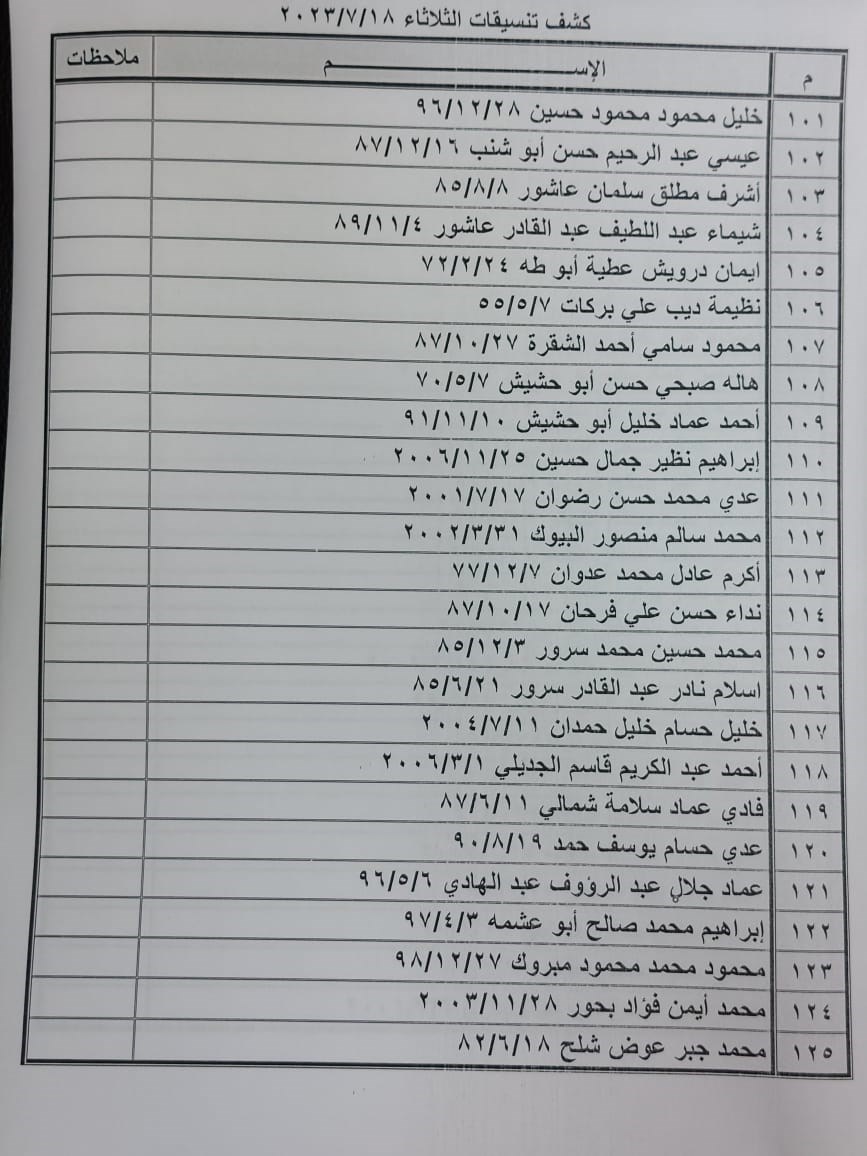 كشف تنسيقات الثلاثاء ٢٠٢٣/٧/١٨
م الإســـــــم ملاحظات
١٠١ خليل محمود محمود حسين ٩٦/١٢/٢٨
١٠٢ عيسي عبد الرحيم حسن أبو شنب ٨٧/١٢/١٦
١٠٣ أشرف مطلق سلمان عاشور ٨٥/٨/٨
١٠٤ شيماء عبد اللطيف عبد القادر عاشور ٨٩/١١/٤
١٠٥ ايمان درويش عطية أبو طه ٧٢/٢/٢٤
١٠٦ نظيمة ديب علي بركات ٥٥/٥/٧
١٠٧ محمود سامي أحمد الشقرة ٨٧/١٠/٢٧
١٠٨ هاله صبحي حسن أبو حشيش ٧٠/٥/٧
١٠٩ أحمد عماد خليل أبو حشيش ٩١/١١/١٠
١١٠ إبراهيم نظير جمال حسين ٢٠٠٦/١١/٢٥
١١١ عدي محمد حسن رضوان ٢٠٠١/٧/١٧
١١٢ محمد سالم منصور البيوك ٢٠٠٢/٣/٣١
١١٣ أكرم عادل محمد عدوان ٧٧/١٢/٧
١١٤ نداء حسن علي فرحان ٨٧/١٠/١٧
١١٥ محمد حسين محمد سرور ٨٥/١٢/٣
١١٦ اسلام نادر عبد القادر سرور ٨٥/٦/٢١
١١٧ خليل حسام خليل حمدان ٢٠٠٤/٧/١١
١١٨ أحمد عبد الكريم قاسم الجديلي ٢٠٠٦/٣/١
١١٩ فادي عماد سلامة شمالي ٨٧/٦/١١
١٢٠ عدي حسام يوسف حمد ٩٠/٨/١٩
١٢١ عماد جلال عبد الرؤوف عبد الهادي ٩٦/٥/٦
١٢٢ إبراهيم محمد صالح أبو عشمه ٩٧/٤/٣
١٢٣ محمود محمد محمود مبروك ٩٨/١٢/٢٧
١٢٤ محمد أيمن فؤاد بحور ٢٠٠٣/١١/٢٨
١٢٥ محمد جبر عوض شلح ٨٢/٦/١٨